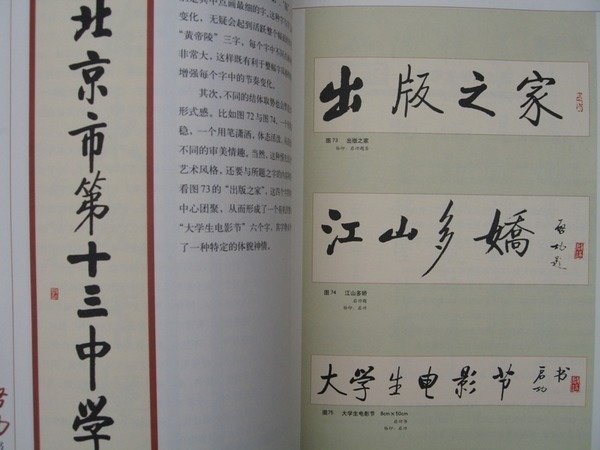 北京市第十三中学
变化,无疑会起到活跃整个
“黄帝陵”三字,每个字中不同
非常大,这样既有利于整幅字
增强每个字中的节奏变化。
其次,不同的结体取势也会
形式感。比如图72与图74,一个
稳,一个用笔潇洒,体态活泼,
不同的审美情趣。当然,这种
艺术风格,还要与所题之字的
看图73的“出版之家”,这四个
中心团聚,从而形成了一个
“大学生电影节”六个字,
了一种特定的体貌神情。
出版之家
图73 出版之家
江山多娇
启功题
图74 江山多娇
启功题
大学生电影节
启功书
图75 大学生电影节 8cm×50cm